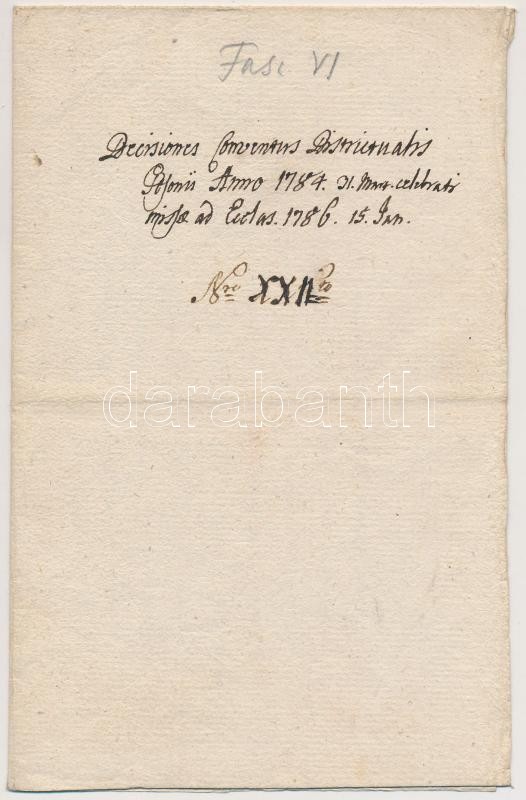 Fasc VI
Decisiones Conventus Districtualis
Posonii Anno 1784. 31. Mart. celebrati
missae ad Eccl̃as. 1786. 15. Jan.
Nro XXIIdo
darabanth